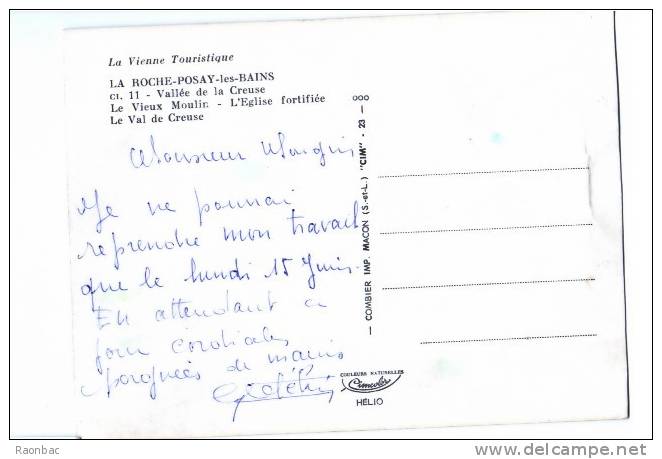 La Vienne Touristique
LA ROCHE-POSAY-les-BAINS
CI. 11 - Vallée de la Creuse
Le Vieux Moulin - L'Eglise fortifiée
Le Val de Creuse
Monsieur
Je ne pourrai
reprendre mon travail
que le lundi 15 Juin.
En attendant ce
jour cordiales
poignées de mains
— COMBIER IMP. MACON (S.-et-L.) "CIM" - 23 - 000
COULEURS NATURELLES
Cimcolor
HÉLIO
Raonbac
delcampe.net